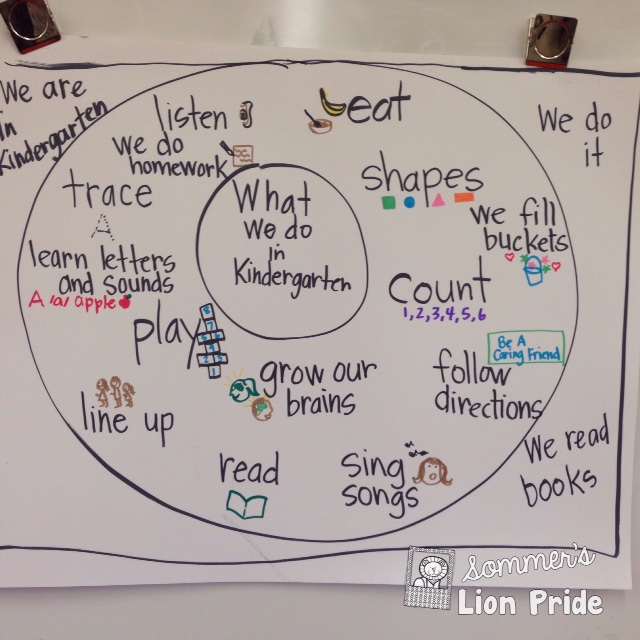 We are
in
Kindergarten
We do
it
listen
eat
we do
homework
trace
A
shapes
we fill
buckets
What
we do
in
Kindergarten
learn letters
and sounds
A /a/ apple
count
1, 2, 3, 4, 5, 6
play
Be A
Caring Friend
grow our
brains
follow
directions
line up
read
sing
songs
We read
books
Sommer's
Lion Pride